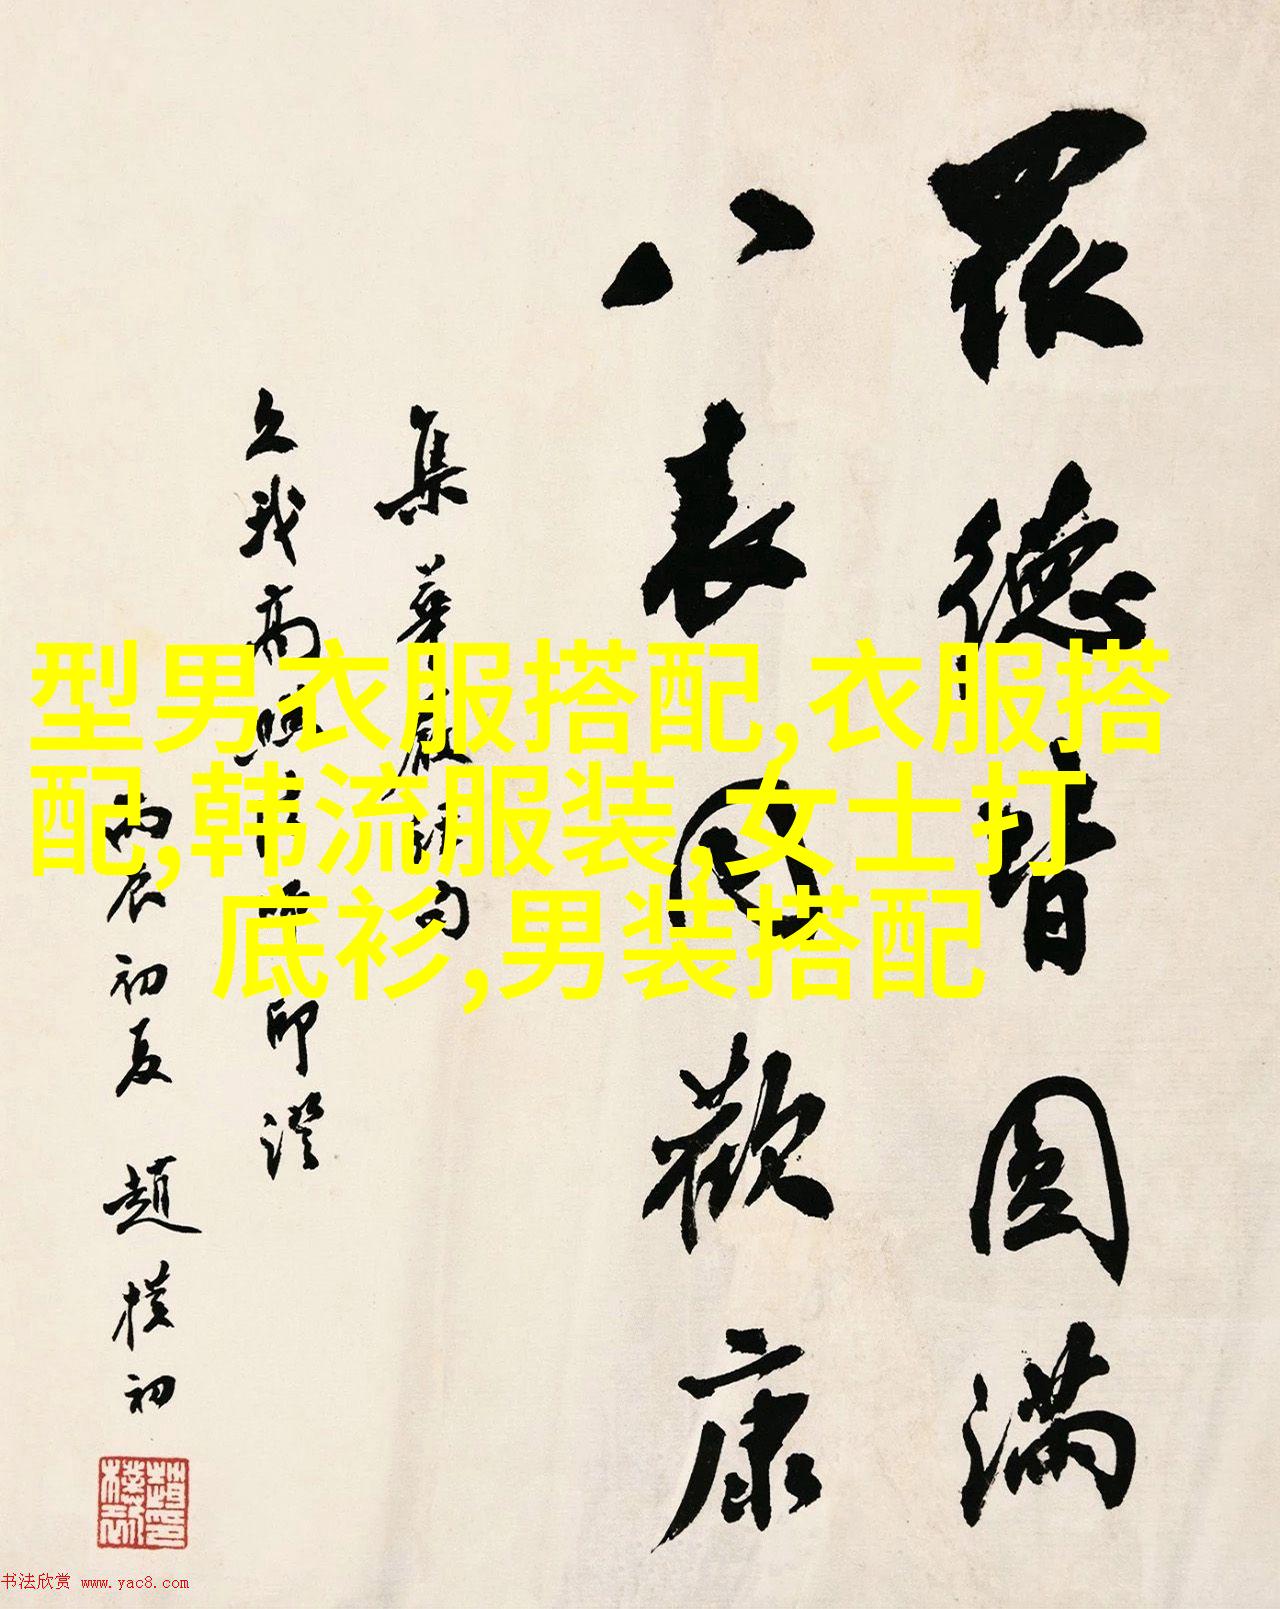 型男衣服搭配,衣服搭
配,韩流服装,女士打
底衫,男装搭配
眾德皆圓滿
八表同歡康
集華嚴句
久我高印證
丙辰初夏 趙樸初
书法欣赏 www.yac8.com